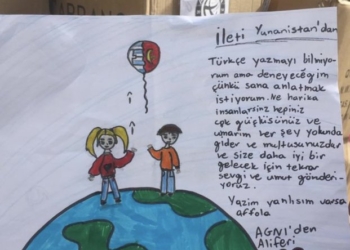 İleti Yunanistan'dan
Türkçe yazmayı bilmiyo-
rum ama deneyeceğim
çünkü sana anlatmak
istiyorum. Ne harika
insanlarsınız hepiniz
çok güçlüsünüz ve
umarım her şey yolunda
gider ve mutlusunuzdur
ve size daha iyi bir
gelecek için tekrar
sevgi ve umut gönderi-
yoruz.
Yazım yanlışım varsa
affola
AGNI'den
Aliferi